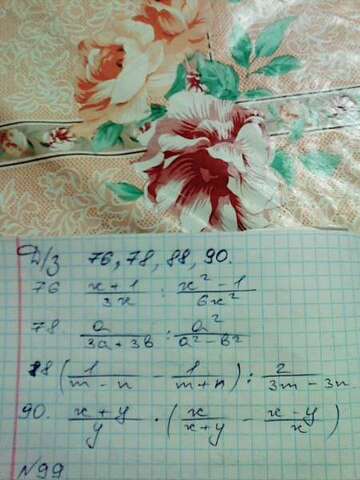 Д/з 76, 78, 88, 90.
76 (x+1)/(3x) : (x²-1)/(6x²)
78 a/(3a+3b) : a²/(a²-b²)
88 (1/(m-n) - 1/(m+n)) : 2/(3m-3n)
90. (x+y)/y · (x/(x+y) - (x-y)/x)
N99